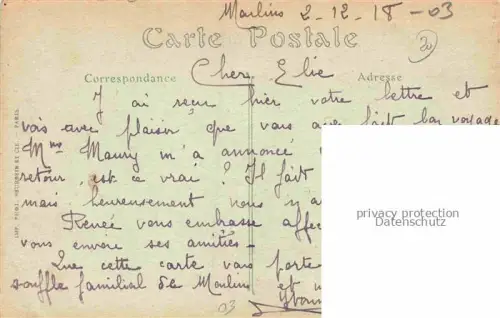 Moulins 2-12-18 - 03
Carte Postale
Correspondance Cher Elie Adresse
J'ai reçu hier votre lettre et
vois avec plaisir que vous avez fait bon voyage
Mme Maury m'a annoncé
retour, est ce vrai ? Il fait
mais heureusement nous n'y a
Renée vous embrasse affec
vous envoie ses amitiés -
Que cette carte vous porte
souffle familial de Moulins et
03
Yvonn
privacy protection
Datenschutz